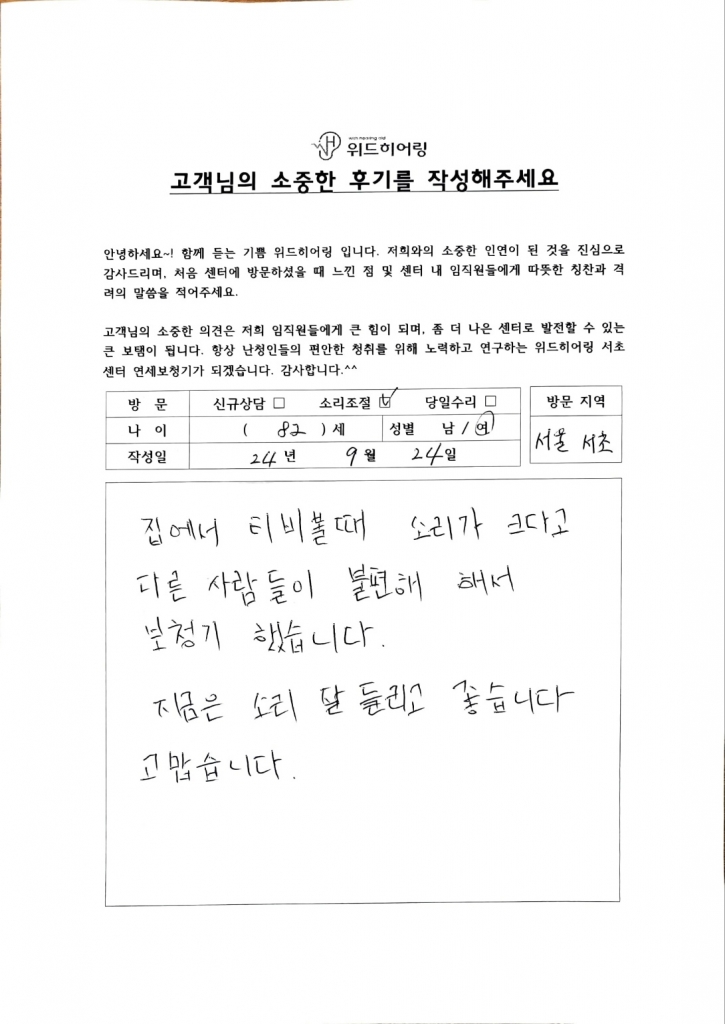 with hearing aid
위드히어링
고객님의 소중한 후기를 작성해주세요
안녕하세요~! 함께 듣는 기쁨 위드히어링 입니다. 저희와의 소중한 인연이 된 것을 진심으로
감사드리며, 처음 센터에 방문하셨을 때 느낀 점 및 센터 내 임직원들에게 따뜻한 칭찬과 격
려의 말씀을 적어주세요.
고객님의 소중한 의견은 저희 임직원들에게 큰 힘이 되며, 좀 더 나은 센터로 발전할 수 있는
큰 보탬이 됩니다. 항상 난청인들의 편안한 청취를 위해 노력하고 연구하는 위드히어링 서초
센터 연세보청기가 되겠습니다. 감사합니다.^^
방 문 신규상담 □ 소리조절 ☑ 당일수리 □ 방문 지역
나 이 ( 82 ) 세 성별 남 / 여 서울 서초
작성일 24 년 9 월 24 일
집에서 티비볼때 소리가 크다고
다른 사람들이 불편해 해서
보청기 했습니다.
지금은 소리 잘 들리고 좋습니다
고맙습니다.